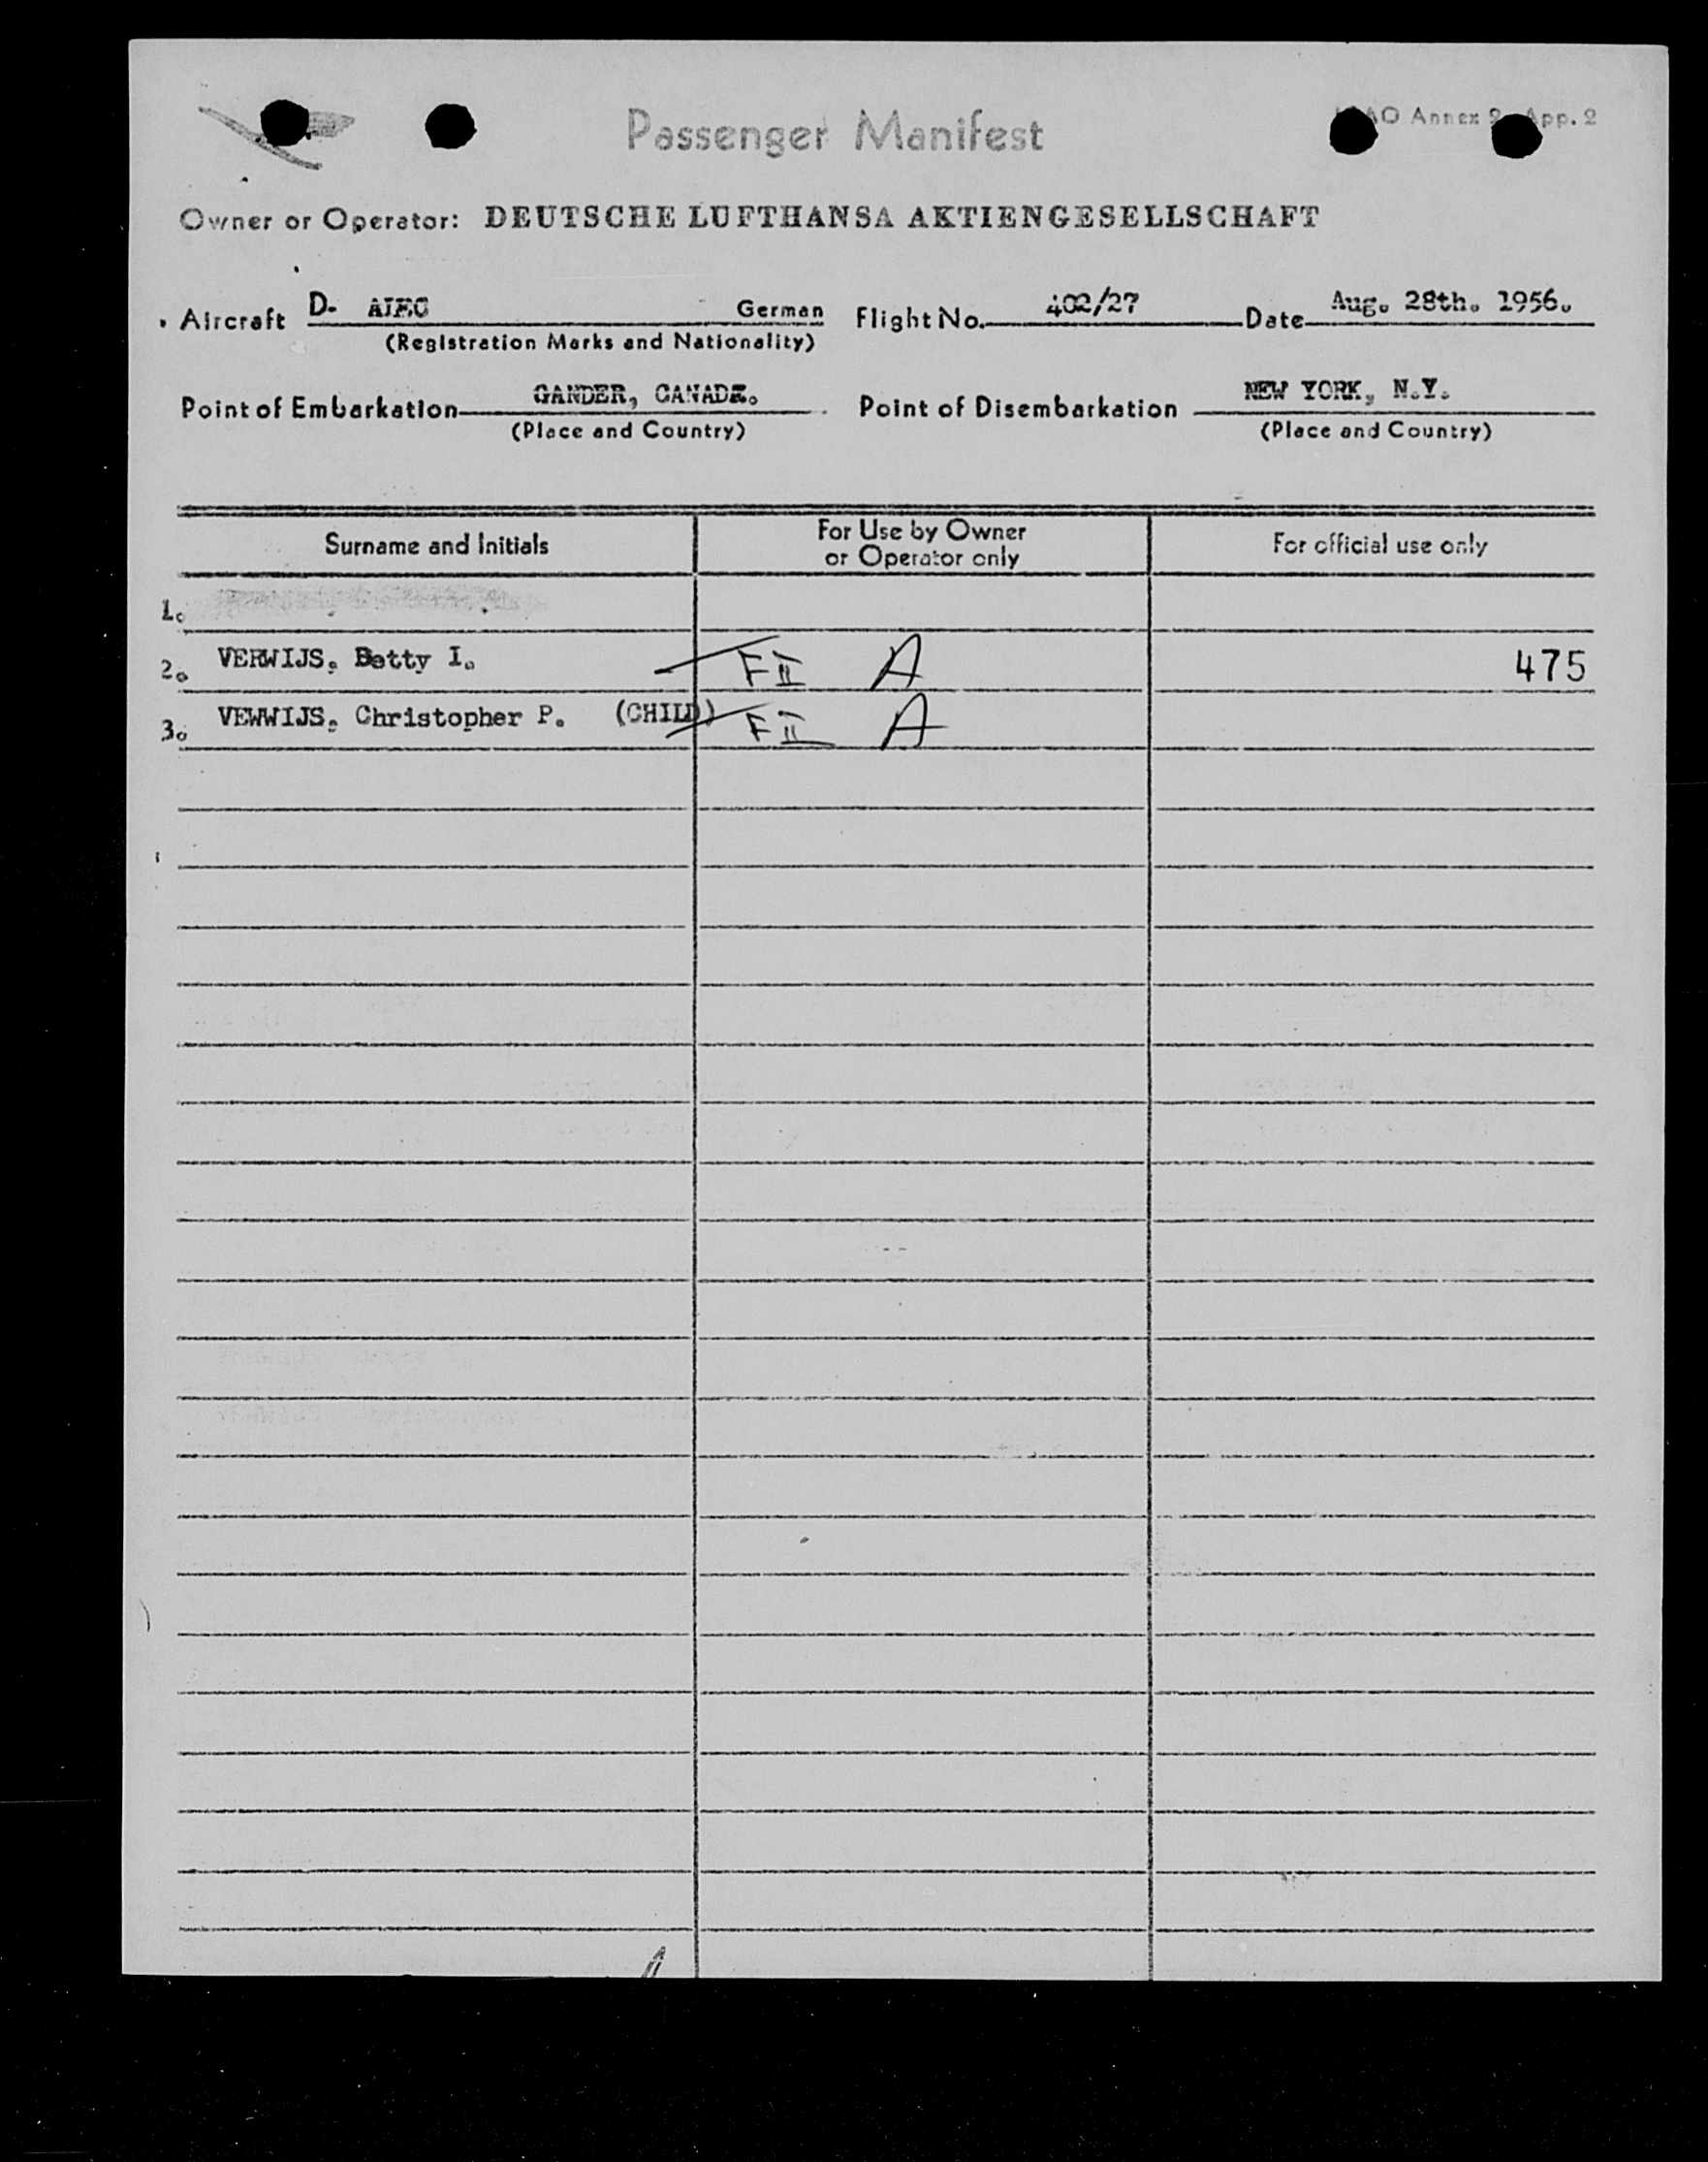 Passenger Manifest
Annex App. 2
Owner or Operator: DEUTSCHE LUFTHANSA AKTIENGESELLSCHAFT
Aircraft D- German Flight No. 402/27 Date Aug. 28th. 1956.
(Registration Marks and Nationality)
Point of Embarkation GANDER, Point of Disembarkation NEW YORK, N.Y.
(Place and Country) (Place and Country)
Surname and Initials For Use by Owner or Operator only For official use only
1.
2. VERWIJS. Betty I. F II A 475
3. VEWWIJS. Christopher P. (CHILD) F II A